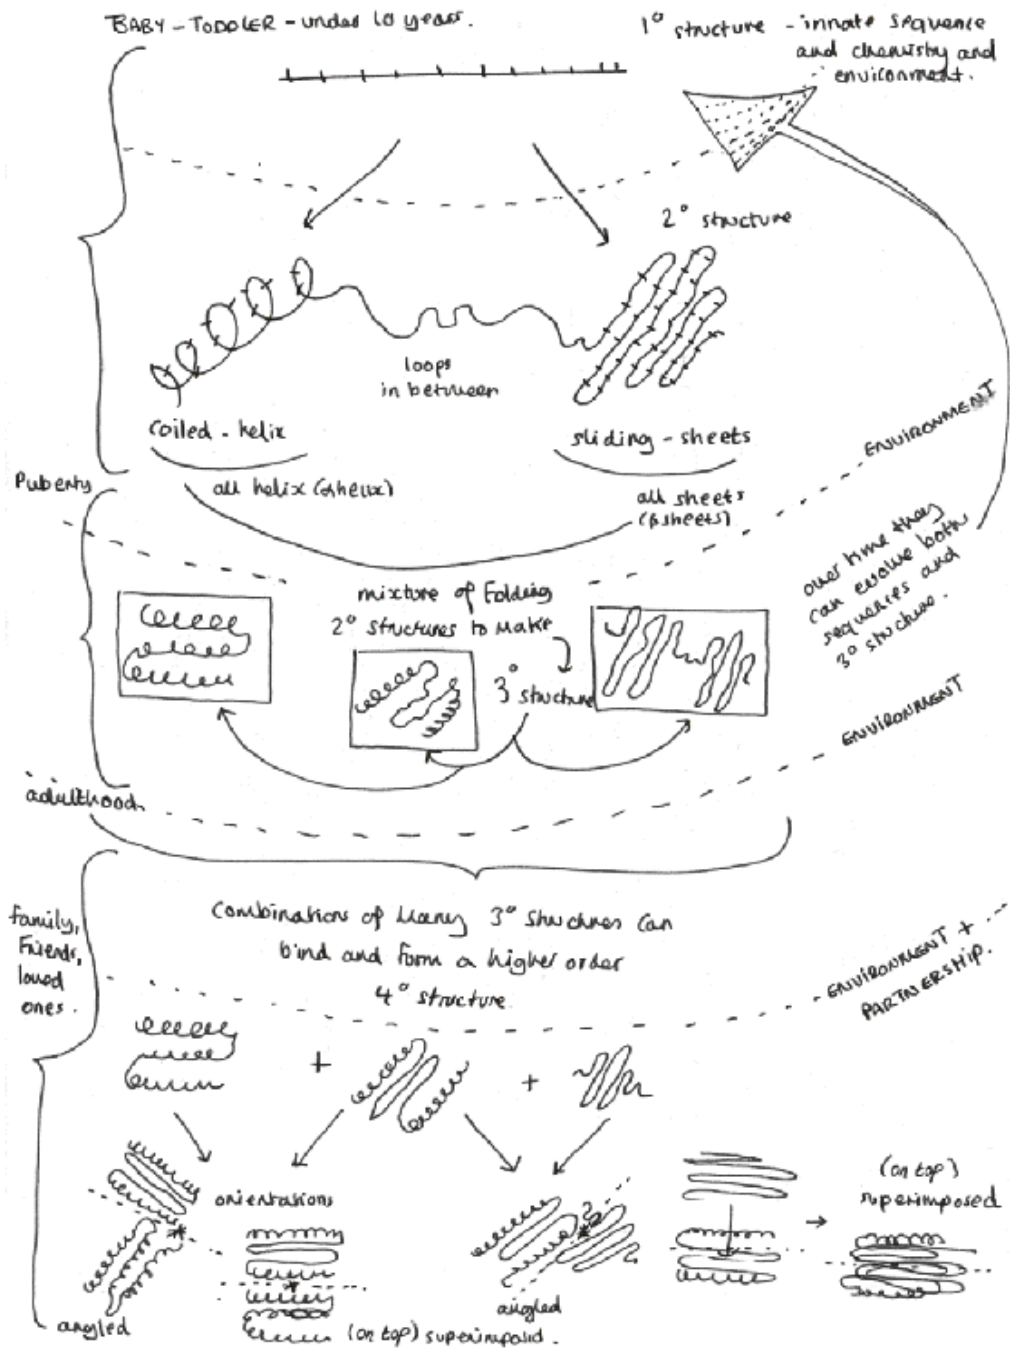 BABY - TODDLER - under 10 years.
1° structure - innate sequence
and chemistry and
environment.
2° structure
loops
in between
coiled - helix
sliding - sheets
ENVIRONMENT
Puberty
all helix (αhelix)
all sheets
(βsheets)
over time they
can evolve both
sequences and
3° structure.
mixture of Folding
2° structures to make
3°
structure
ENVIRONMENT
adulthood
family,
Friends,
loved
ones.
Combinations of many 3° structures can
bind and form a higher order
4° structure
ENVIRONMENT +
PARTNERSHIP.
+
+
orientations
(on top)
superimposed
angled
angled
(on top) superimposed.